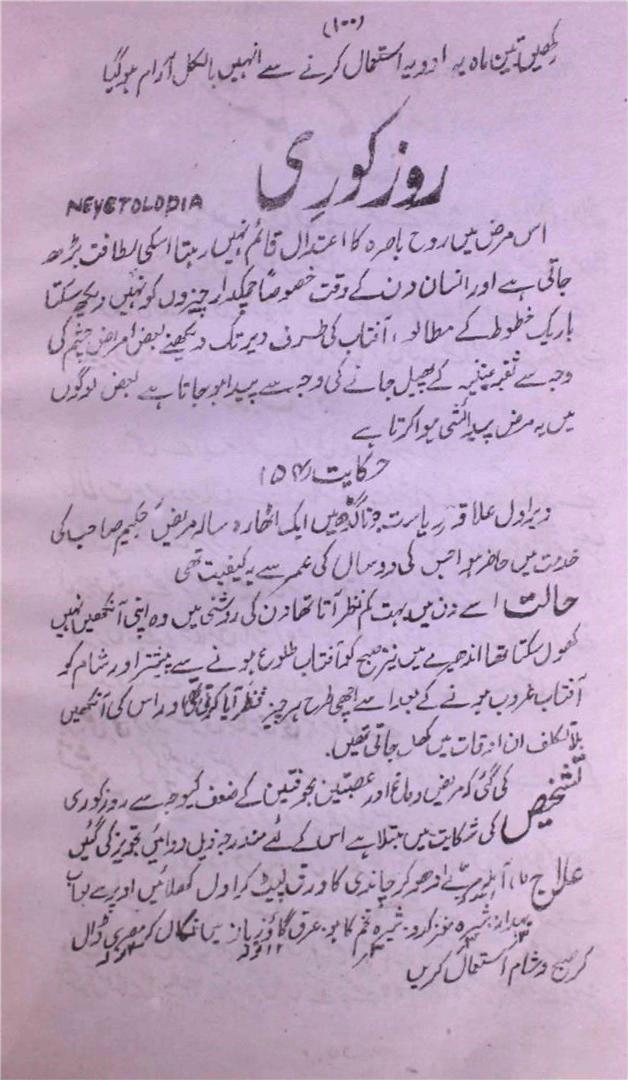 (۱۰۰)
رکھیں تین ماہ یہ ادویہ استعمال کرنے سے انہیں بالکل آرام ہوگیا
روز کوری
NEYCTOLOPIA
اس مرض میں روح باصرہ کا اعتدال قائم نہیں رہتا اسکی لطافت بڑھ
جاتی ہے اور انسان دن کے وقت خصوصاً چمکدار چیزوں کو نہیں دیکھ سکتا
باریک خطوط کے مطالعہ، آفتاب کی طرف دیر تک دیکھنے بعض امراض چشم کی
وجہ سے ثقبہ عنبیہ کے پھیل جانے کی وجہ سے پیدا ہو جاتا ہے بعض لوگوں
میں یہ مرض پیدائشی ہوا کرتا ہے
حکایت ۱۵۴
ویراول علاقہ ریاست جوناگڑھ میں ایک اٹھارہ سالہ مریض حکیم صاحب کی
خدمت میں حاضر ہوا جس کی دو سال کی عمر سے یہ کیفیت تھی
حالت اسے دن میں بہت کم نظر آتا تھا دن کی روشنی میں وہ اپنی آنکھیں نہیں
کھول سکتا تھا اندھیرے میں نیز صبح کو آفتاب طلوع ہونے سے پیشتر اور شام کو
آفتاب غروب ہونے کے بعد اسے اچھی طرح ہر چیز نظر آیا کرتی تھی اور اس کی آنکھیں
بلا تکلف ان اوقات میں کھل جاتی تھیں۔
تشخیص کی گئی کہ مریض دماغ اور عصبتین مجوفتین کے ضعف کیوجہ سے روز کوری
کی شکایت میں مبتلا ہے اس کے لئے مندرجہ ذیل دوائیں تجویز کی گئیں
علاج (۱) آملہ مربے دھو کر چاندی کا ورق لپیٹ کر اول کھلائیں اوپر سے لعاب
بہدانہ شیرہ مغز کدو شیرہ تخم کاہو عرق گاؤزباں میں نکال کر مصری ڈال
کر صبح و شام استعمال کریں